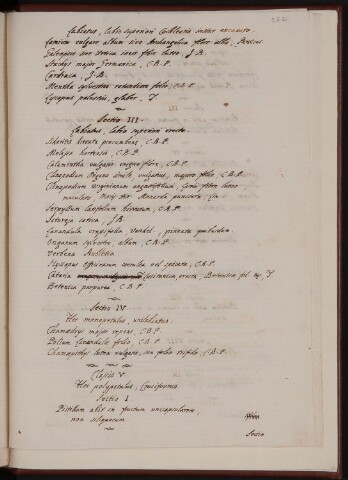 Labiatus, labio superiori Cochlearis instar excavato.
Lamium vulgare album sive Archangelica flore albo, Park.
Galeopsis sive Urtica iners flore luteo, J.B.
Stachys major Germanica, C.B.P.
Cardiaca, J.B.
Mentha sylvestris rotundiore folio, C.B.P.
Lycopus palustris, glaber, T.
Sectio III
Labiatus, labio superiori erecto.
Marrubium C.B.P.
Melissa hortensis, C.B.P.
Calamintha vulgaris C.B.P.
Clinopodium Origano simile, vulgatius, majore folio, C.B.P.
Clinopodium Virginianum angustifolium, flore luteo
maculoso, Monarda punctata, Lin
Serpyllum Capitulum C.B.P.
Satureja sativa, J.B.
Lavandula
Origanum sylvestre, album, C.B.P.
Verbena Aubletia
Hyssopus officinarum caerulea vel spicata, C.B.P.
Cataria Lusitanica, erecta, Betonicae fol. T
Betonica purpurea, C.B.P.
Sectio IV
Flos monopetalus, unilabiatus.
Chamaedrys major repens, C.B.P.
Polium Lavandulae folio, C.B.P.
Chamaepitys lutea vulgaris, sive folio trifido, C.B.P.
Classis V
Flos polypetalus, Cruciformis
Sectio I
Pistillum abit in fructum unicapsularem,
non siliquosum
Sectio